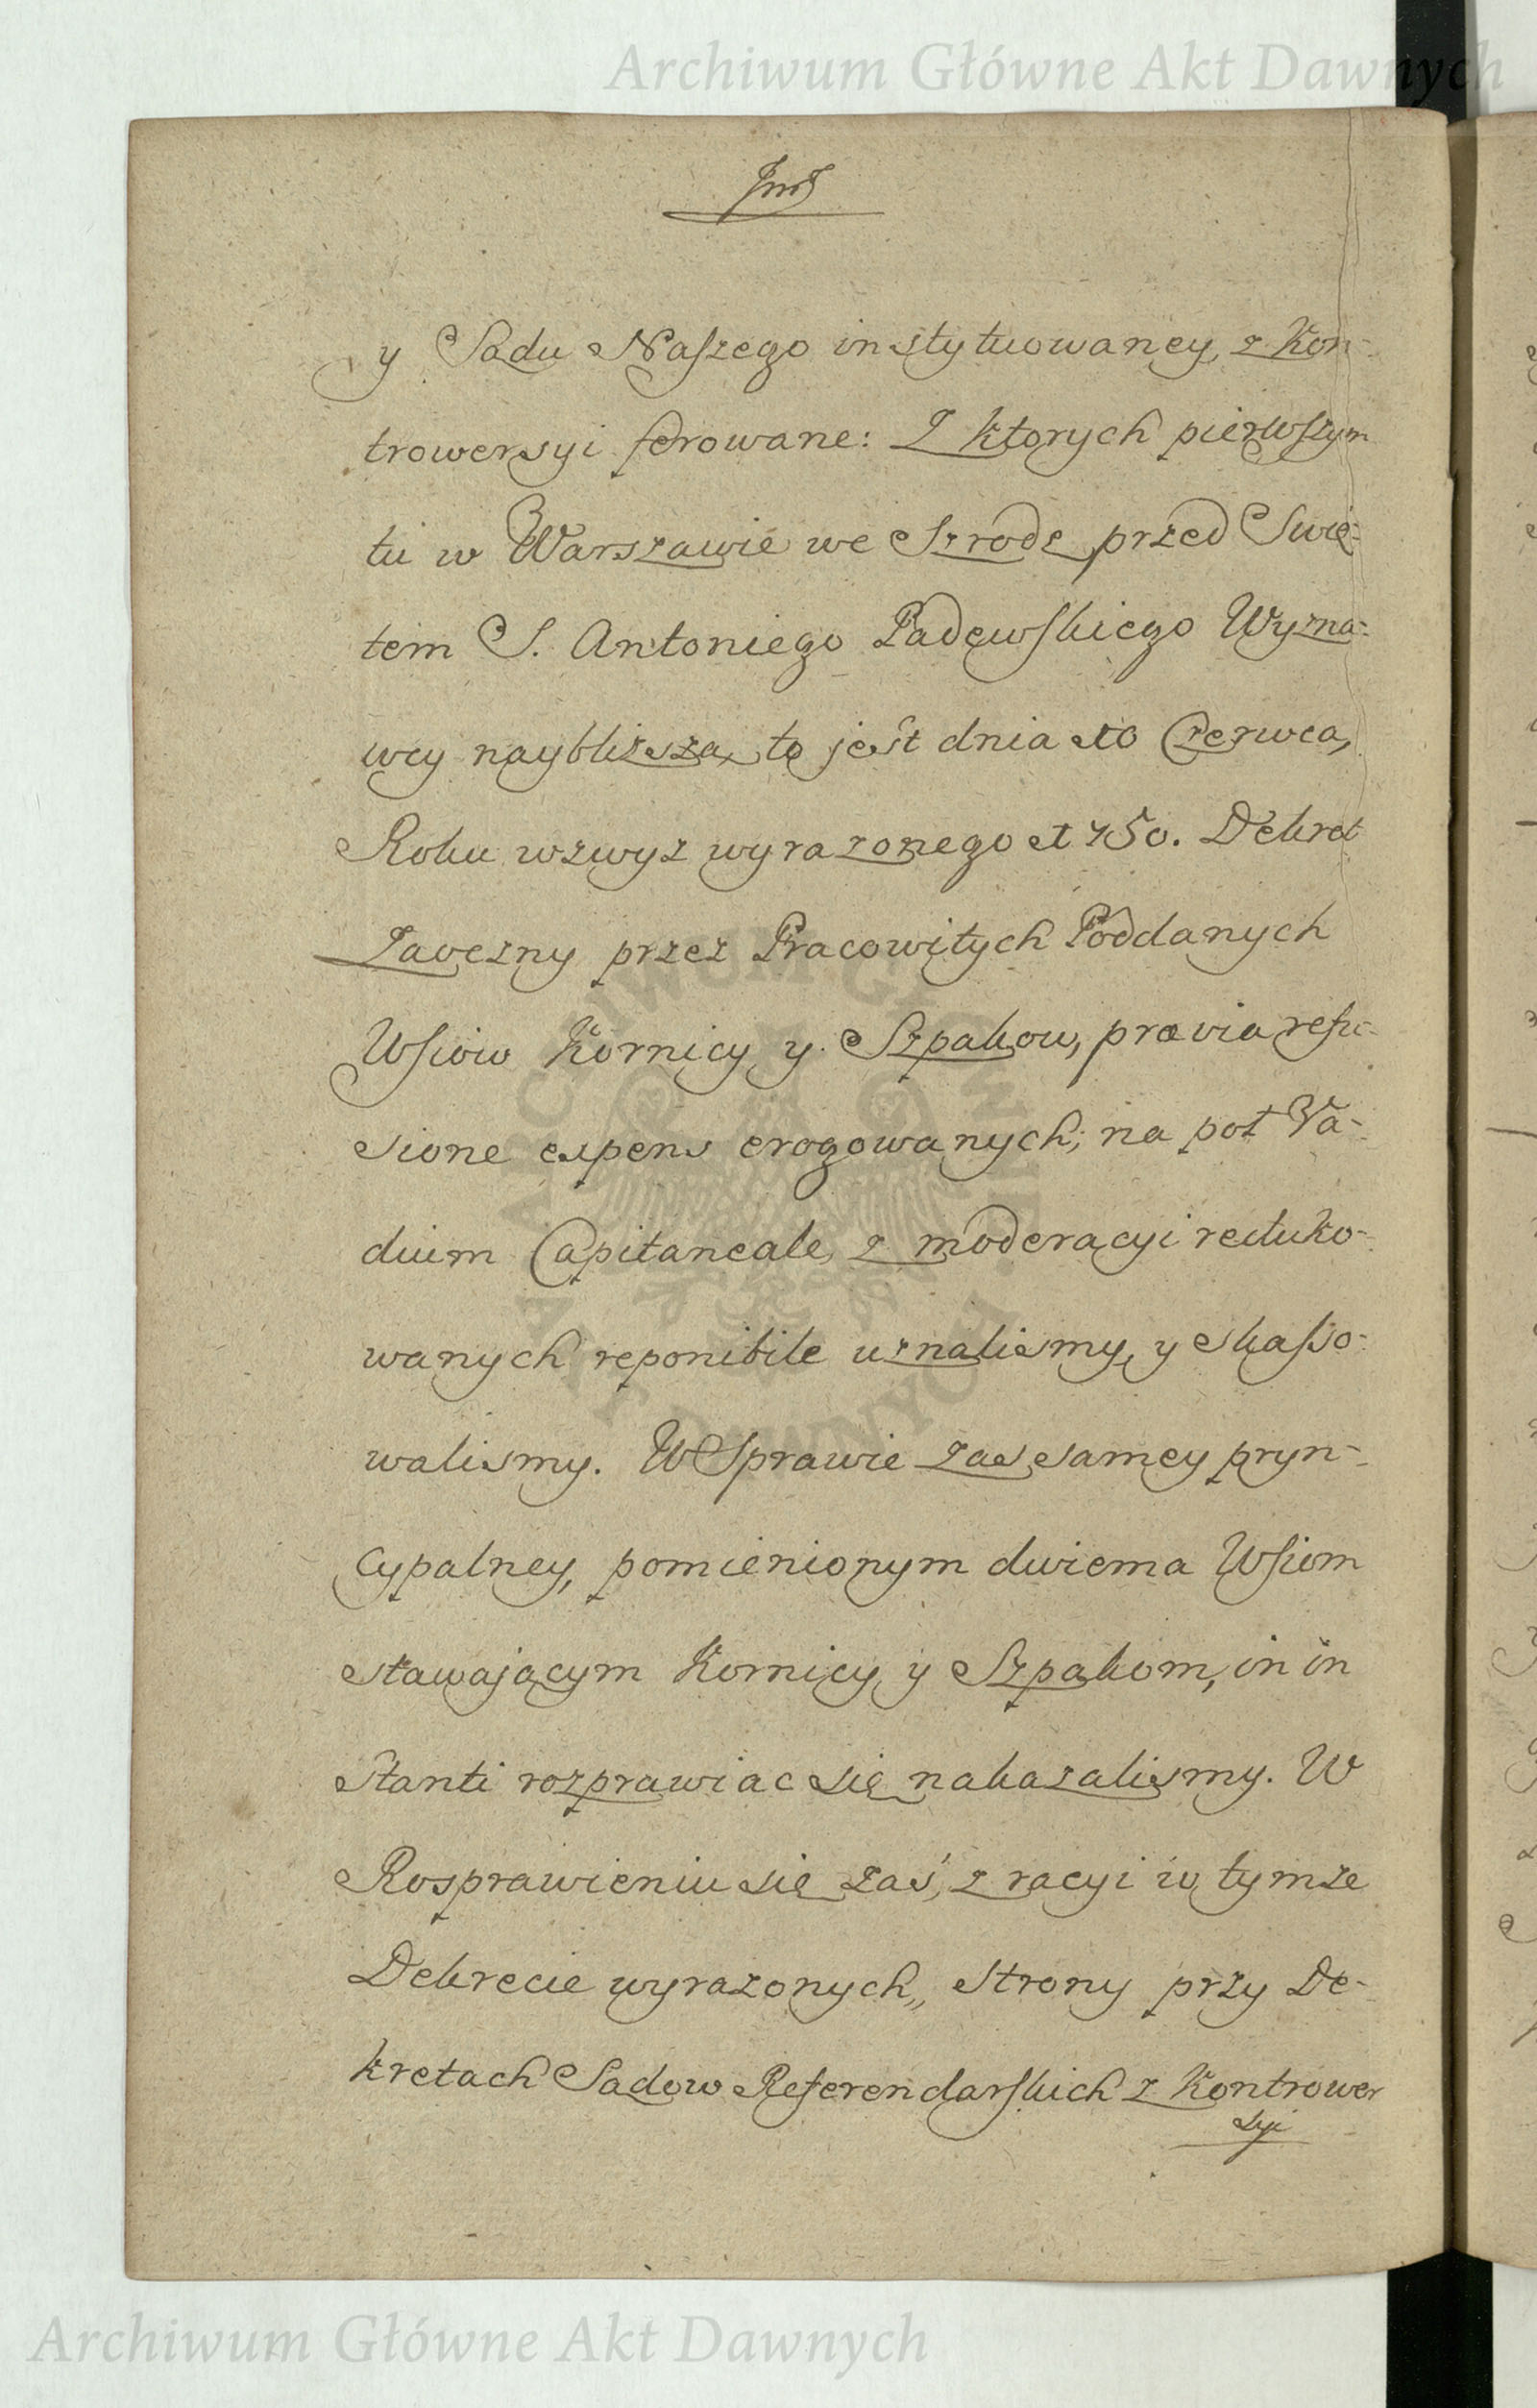 Archiwum Główne Akt Dawnych
y Sadu Naszego instytuowaney, z Kon-
trowersyi ferowane: Z ktorych pierwszym
tu w Warszawie we Szrodę przed Swię-
tem S. Antoniego Padewskiego Wyzna-
wcy naybliższą, to jest dnia 10 Czerwca,
Roku wzwyz wyrazonego 1750. Dekret
Zaoczny przez Pracowitych Poddanych
Wsiow Kornicy y Szpakow, prævia refu-
sione expens erogowanych, na poł Va-
dium Capitaneale, z moderacyi reduko-
wanych reponibile uznalismy, y skasso-
walismy. W Sprawie zas samey pryn-
cypalney, pomienionym dwiema Wsiom
stawającym Kornicy y Szpakom, in in
stanti rozprawiac się nakazalismy. W
Rosprawieniu się zaś, z racyi w tymze
Dekrecie wyrazonych, strony przy De-
kretach Sadow Referendarskich z Kontrower
syi
ARCHIWUM GŁÓWNE AKT DAWNYCH
Archiwum Główne Akt Dawnych